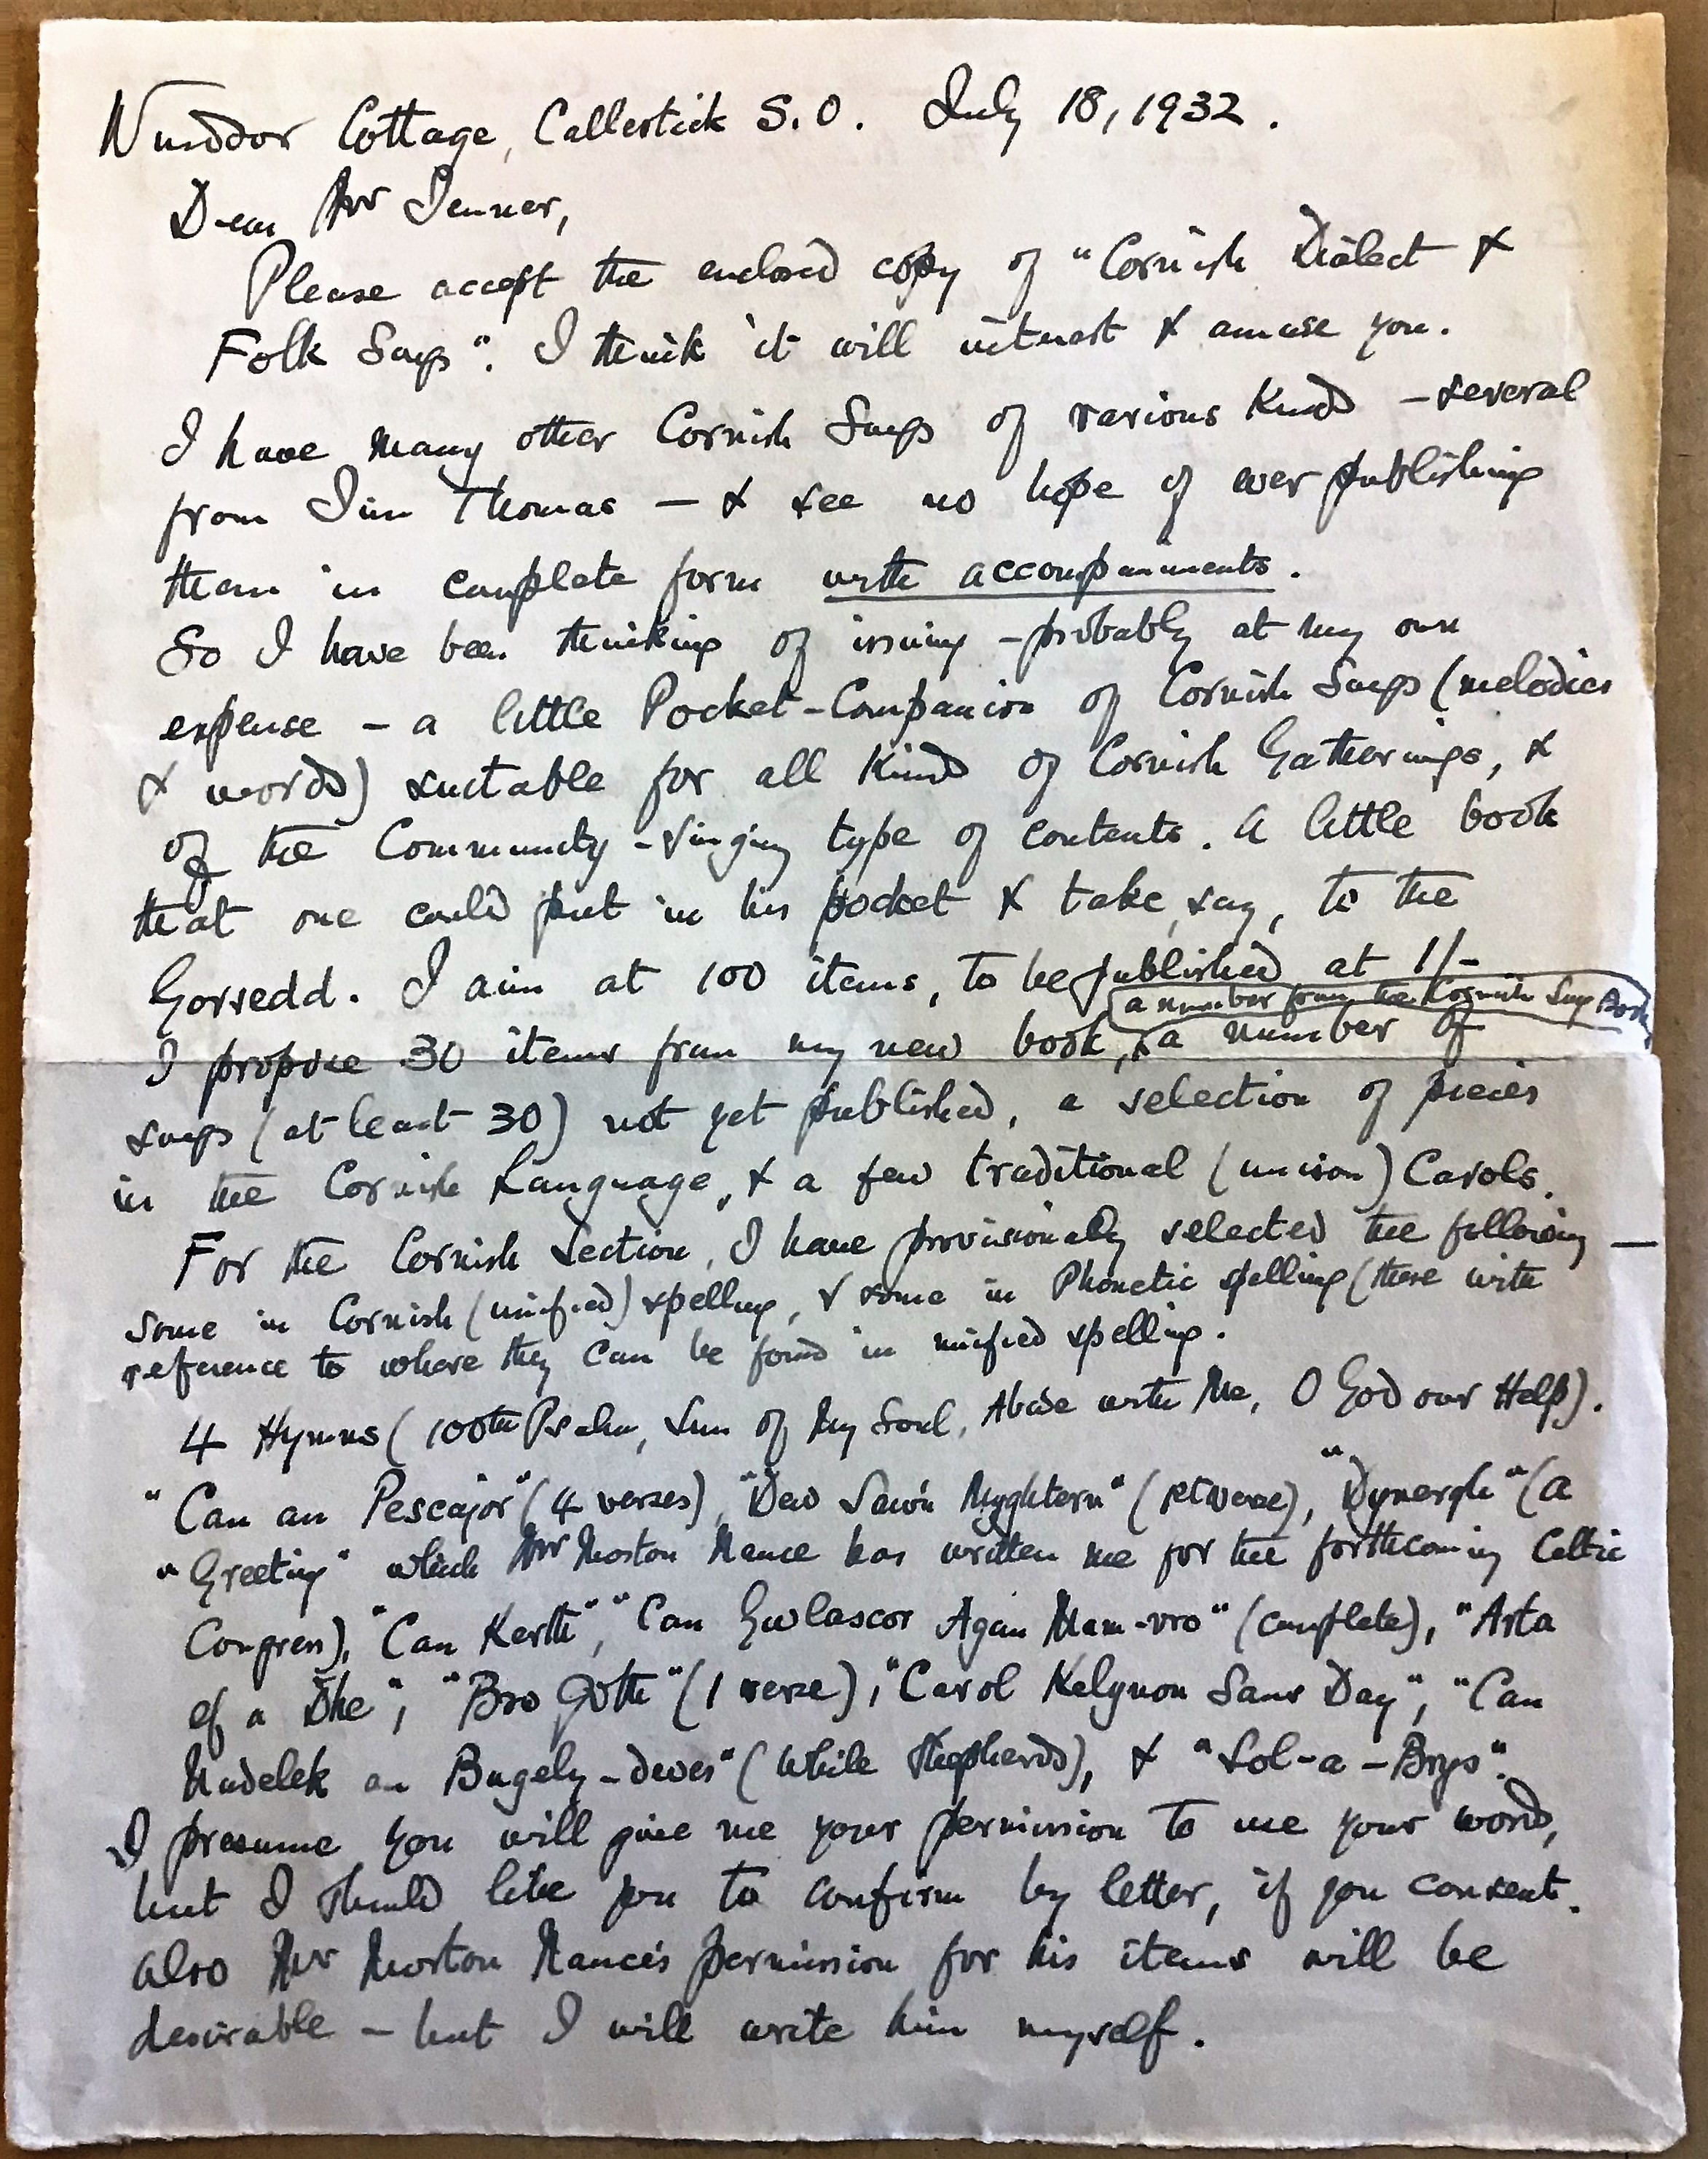 Cottage, Callestick S.O. July 18, 1932.
Dear Mr Jenner,
Please accept the enclosed copy of "Cornish Dialect &
Folk Songs". I think it will interest & amuse you.
I have many other Cornish Songs of various kinds – several
from Jim Thomas – & see no hope of ever publishing
them in complete form with accompaniments.
So I have been thinking of issuing – probably at my own
expense – a little Pocket-Companion of Cornish Songs (melodies
& words) suitable for all kinds of Cornish Gatherings, &
of the Community-singing type of contents. A little book
that one could put in his pocket & take, say, to the
Gorsedd. I aim at 100 items, to be published at 1/-
a number from the Cornish Song Book
I propose 30 items from my new book, & a number of
songs (at least 30) not yet published, a selection of pieces
in the Cornish Language, & a few traditional (unison) Carols.
For the Cornish Section, I have provisionally selected the following —
some in Cornish (unified) spelling, & some in Phonetic spelling (these with
reference to where they can be found in unified spelling.
4 Hymns (100th Psalm, Sun of My Soul, Abide with Me, O God our Help).
"Can an Pescajor" (4 verses), "Dew Sawn Myghtern" (1st verse), "Dynergh" (a
"Greeting" which Mr Morton Nance has written me for the forthcoming Celtic
Congress), "Can Kerth", "Can Gwlascor Agan Mam-vro" (complete), "Arta
ef a Dhe", "Bro Goth" (1 verse), "Carol Kelynnon Sans Day", "Can
Nadelek an Bugely-dewes" (While Shepherds), & "Sol-a-Brys".
I presume you will give me your permission to use your words,
but I should like you to confirm by letter, if you consent.
Also Mr Morton Nance's permission for his items will be
desirable – but I will write him myself.